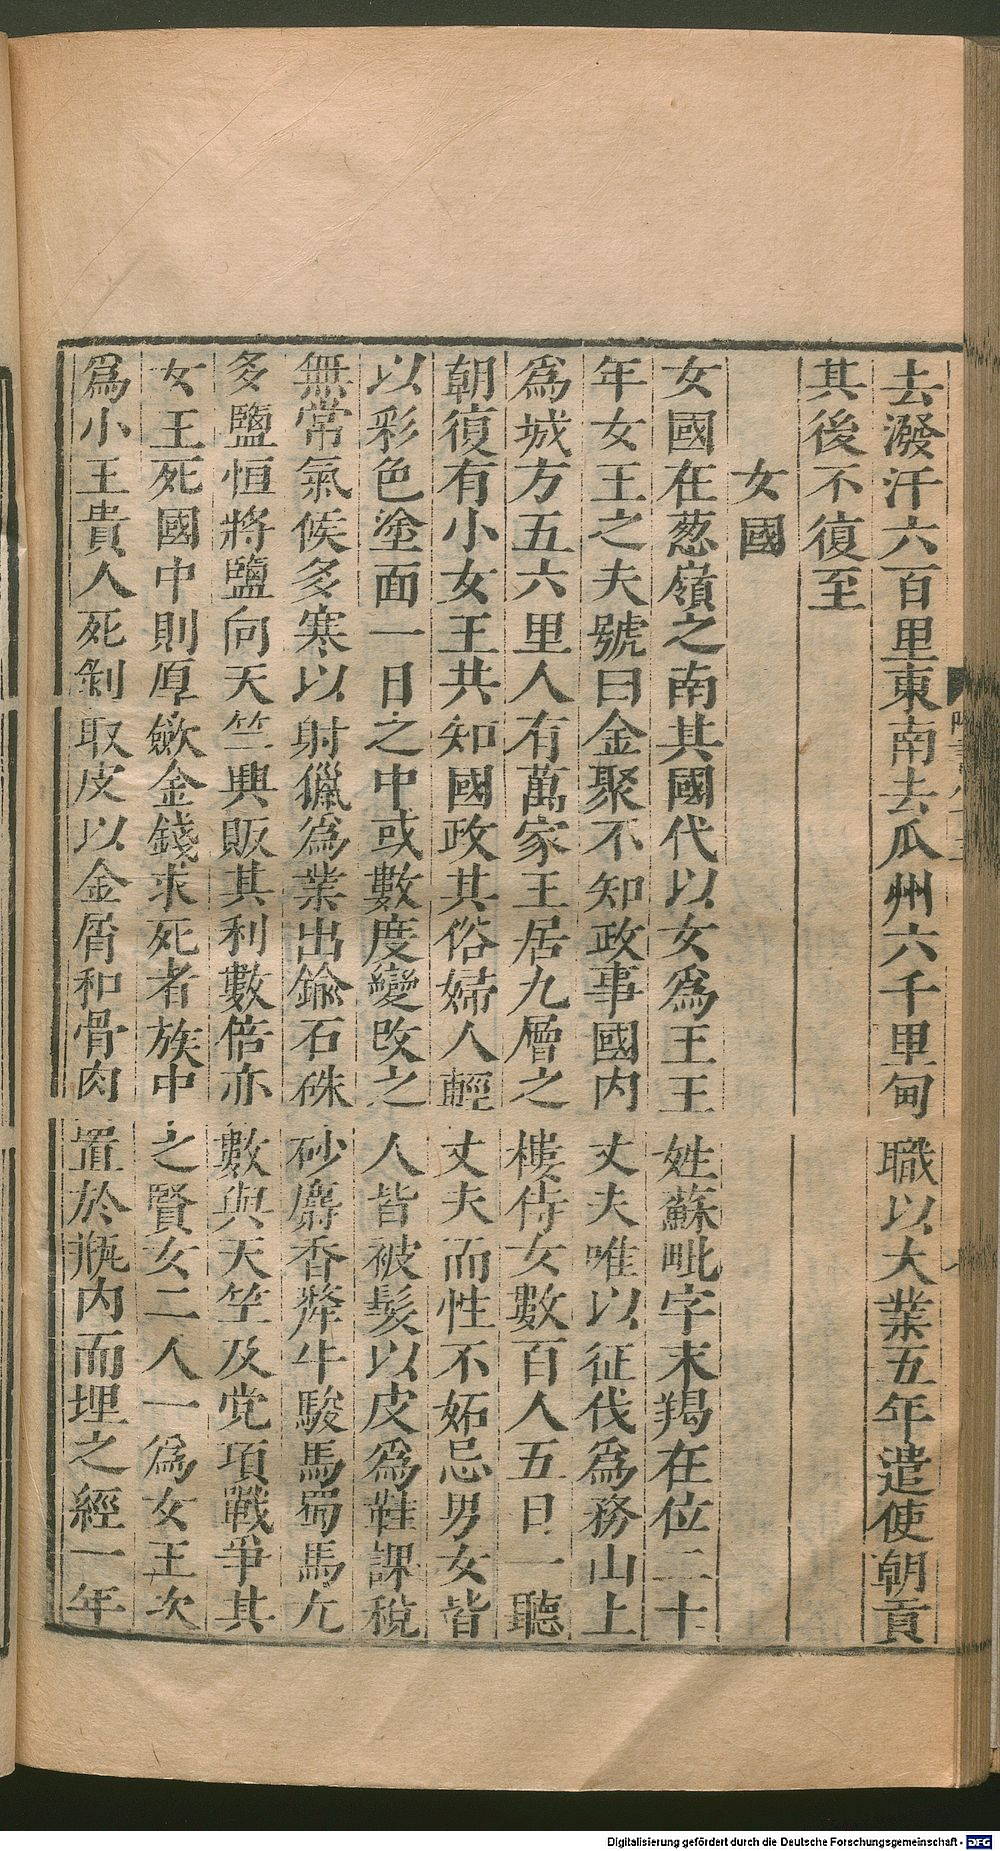 去潑汗六百里東南去瓜州六千里甸職以大業五年遣使朝貢
其後不復至
女國
女國在葱嶺之南其國代以女爲王王姓蘇毗字末羯在位二十
年女王之夫號曰金聚不知政事國内丈夫唯以征伐爲務山上
爲城方五六里人有萬家王居九層之樓侍女數百人五日一聽
朝復有小女王共知國政其俗婦人輕丈夫而性不妬忌男女皆
以彩色塗面一日之中或數度變改之人皆被髮以皮爲鞋課稅
無常氣候多寒以射獵爲業出鍮石硃砂麝香犛牛駿馬蜀馬尤
多鹽恒將鹽向天竺興販其利數倍亦數與天竺及党項戰爭其
女王死國中則厚歛金錢求死者族中之賢女二人一爲女王次
爲小王貴人死剝取皮以金屑和骨肉置於瓶内而埋之經一年
Digitalisierung gefördert durch die Deutsche Forschungsgemeinschaft - DFG